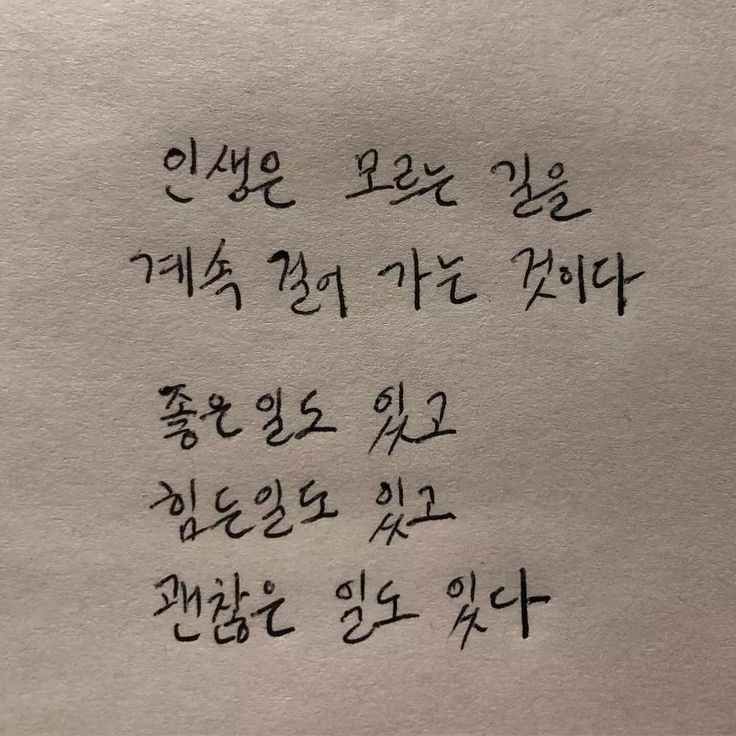 인생은 모르는 길을
계속 걸어 가는 것이다
좋은일도 있고
힘든일도 있고
괜찮은 일도 있다